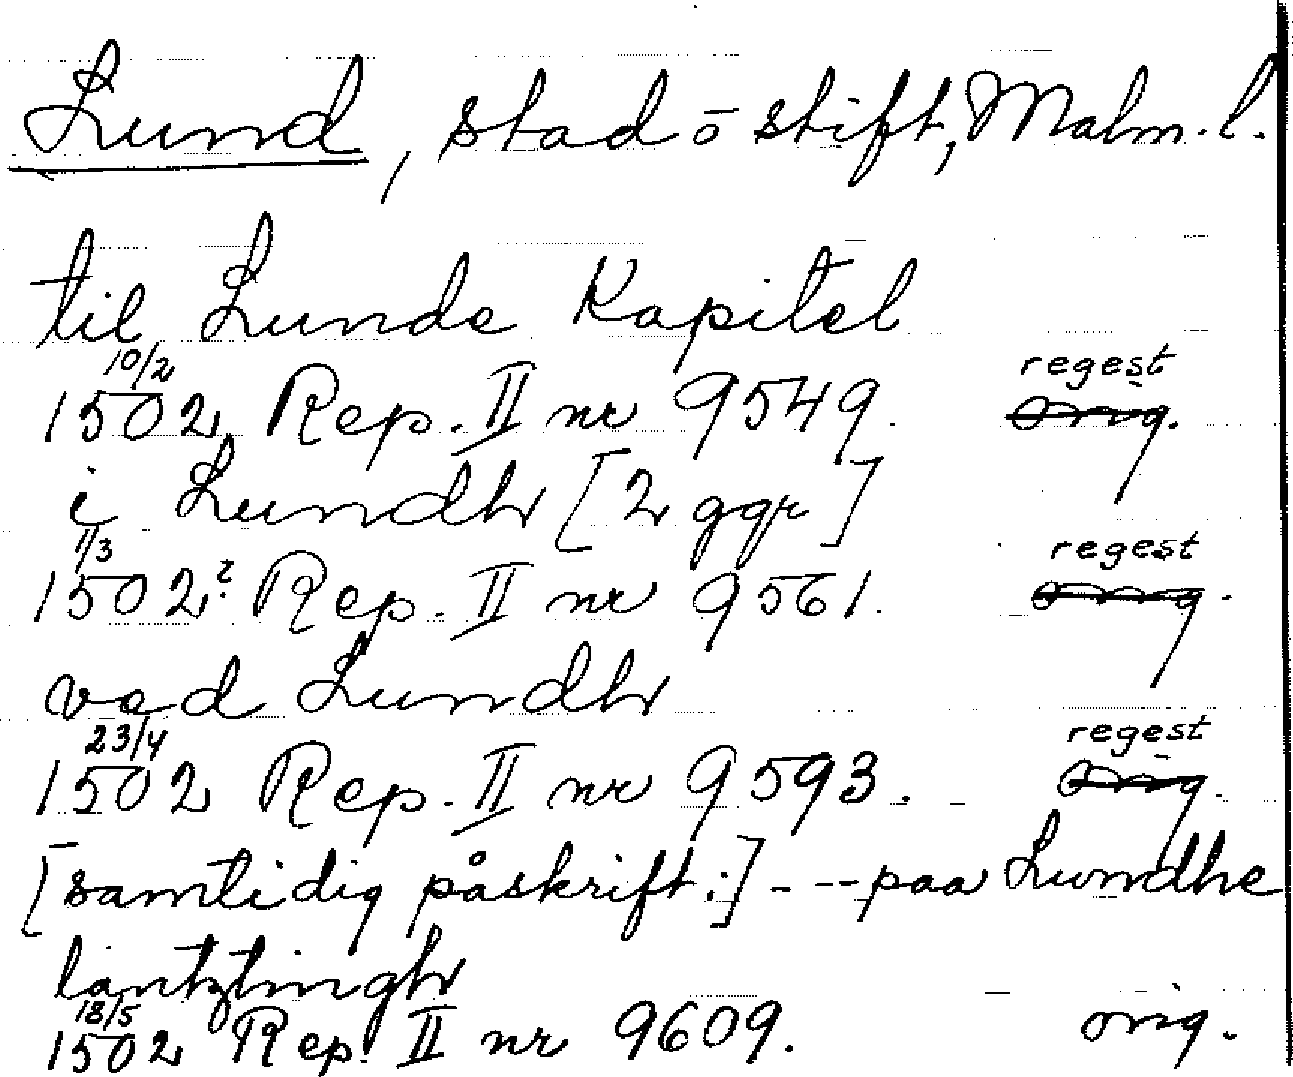 Lund, stad o stift, Malm. l.
til Lunde Kapitel
10/2 1502 Rep. II nr 9549. regest orig.
i Lundh [2 ggr]
1/3 1502? Rep. II nr 9561. regest orig.
ved Lundh
23/4 1502 Rep. II nr 9593. regest orig.
[samtidig påskrift:] --- paa Lundhe
lantztingh
18/5 1502 Rep. II nr 9609. orig.